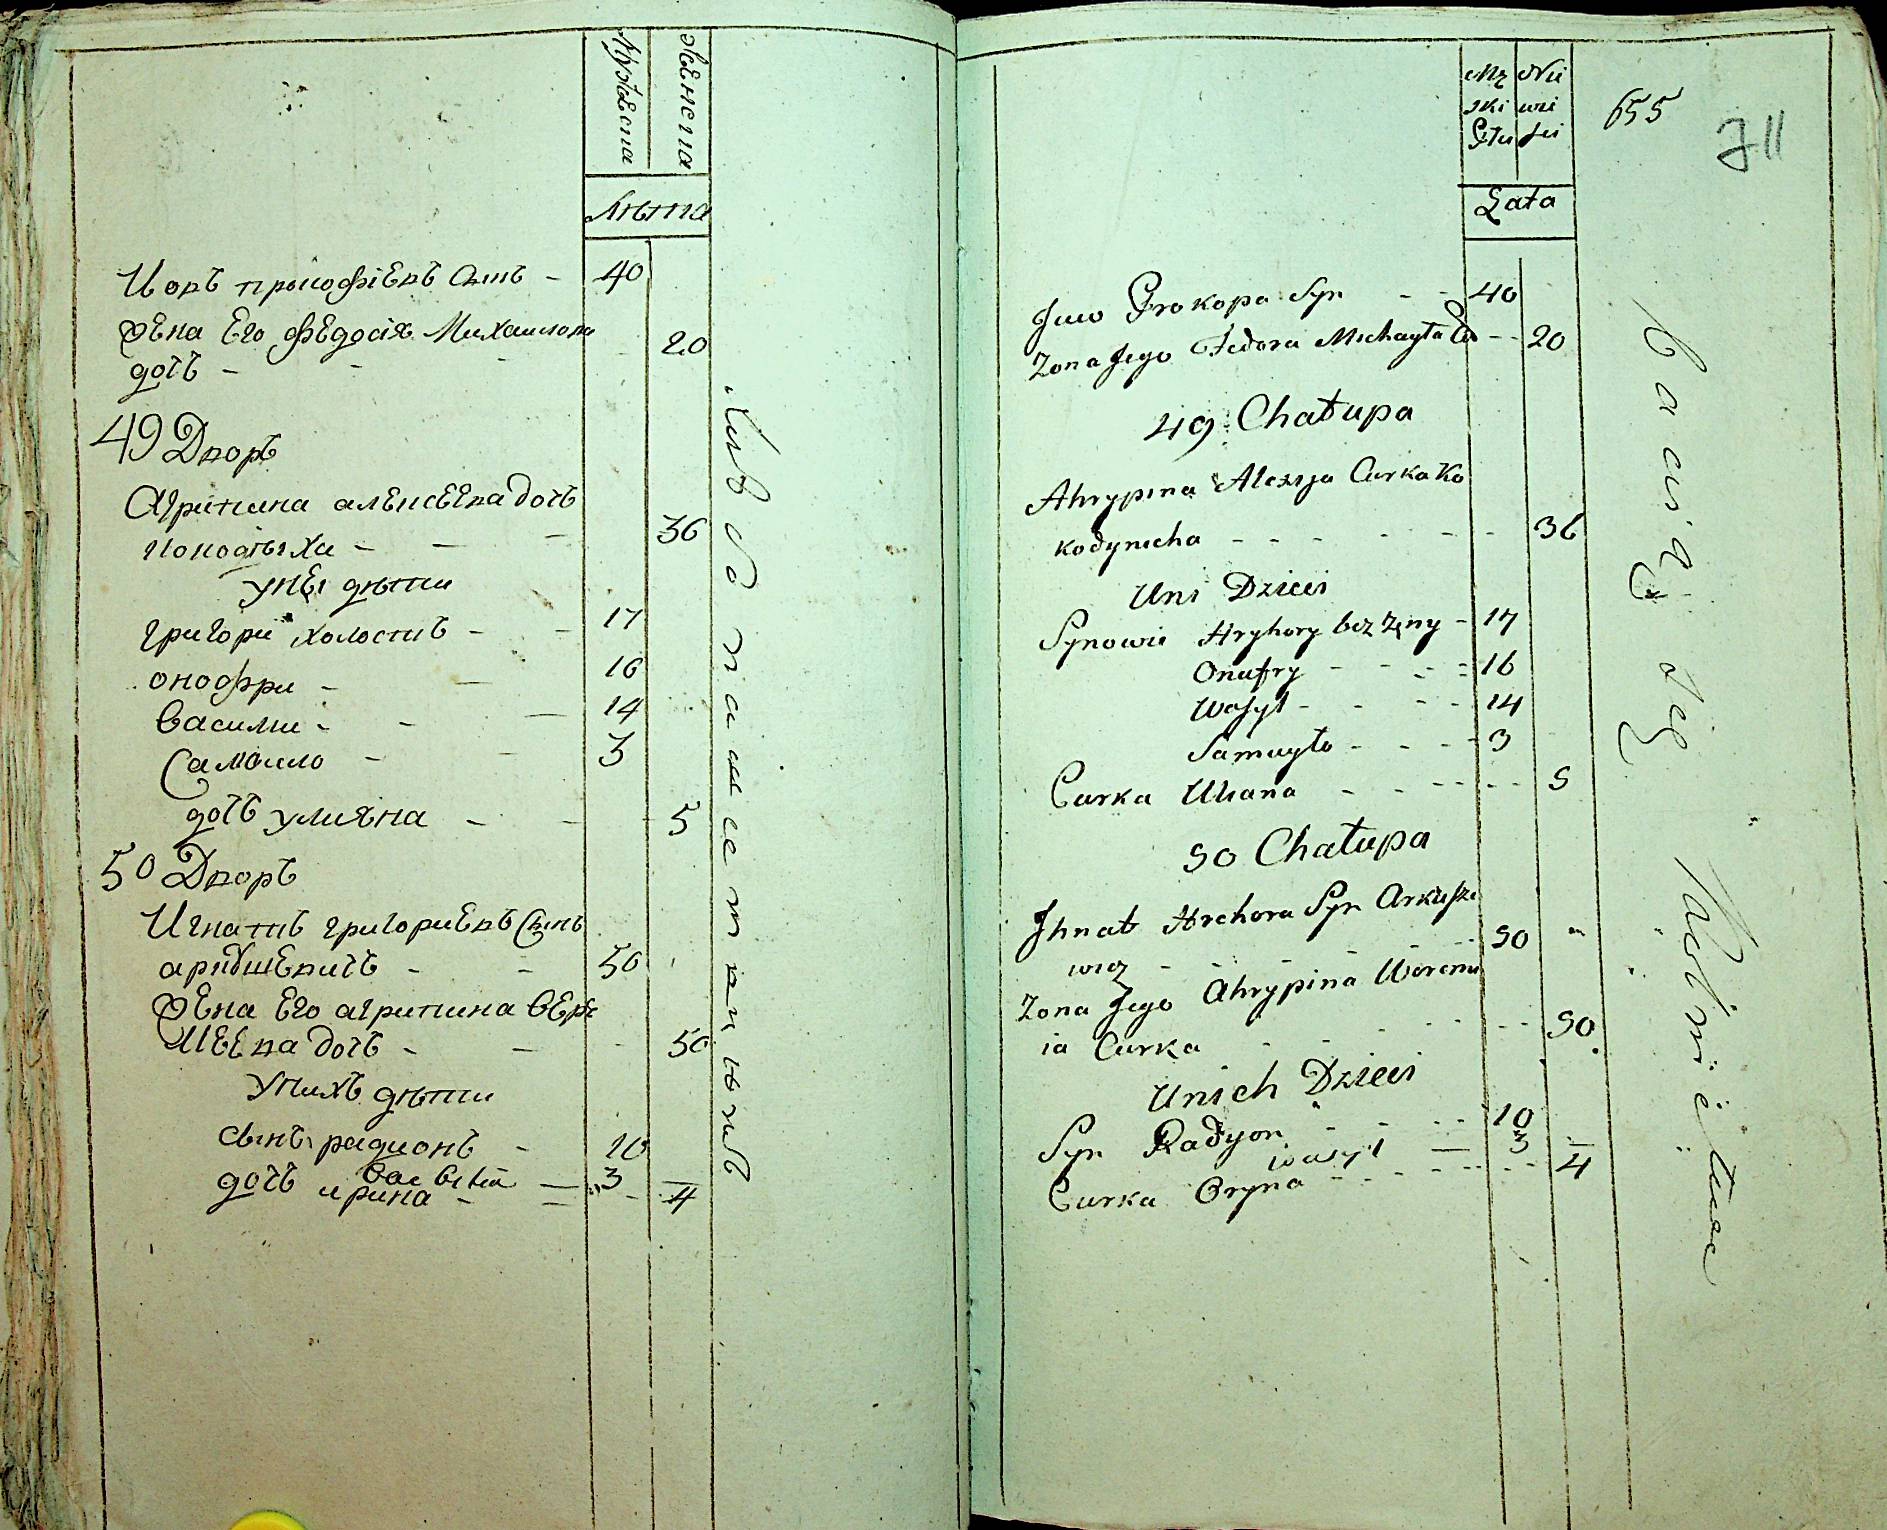 Мужеска
Женска
Лѣта
Иовъ прокофіевъ сынъ - 40
жена Его федосія Михаилова 20
дочь - -
49 Дворъ
Агрипина алексеева дочь
кокодыха - - - 36
унеі дѣти
григори холостиъ - - 17
онофри - - 16
василии - - - 14
Самоило - - 3
дочь улияна - - 5
50 Дворъ
Игнатиъ григориевъ Сынъ
- - 50
жена Его агрипина вере
меева дочь - - 50
унихъ дѣти
сынъ радионъ - 10
василій — 3
дочь ирина - 4
Męski
Lata
655
711
Jwo Prokopa Syn - - 40
Zona Jego Fedora Michayła Cu - - 20
49 Chałupa
Ahrypina Alexija Curka Ko
kodynicha - - - - - - 36
Uni Dzieci
Synowie Hryhory bez Zęny - 17
Onufry - - - - 16
Wasyl - - - - 14
Samuyło - - - - 3
Curka Uliana - - - - - - 5
50 Chałupa
Jhnat Hrehora Syn Arkusze
wicz - - - - - 50 "
Zona Jego Ahrypina Weremi
ia Curka - - - - - 50.
Unich Dzieci
Syn Radyon - - - - 10
wasyl — 3
Curka Oryna - - - - - - 4